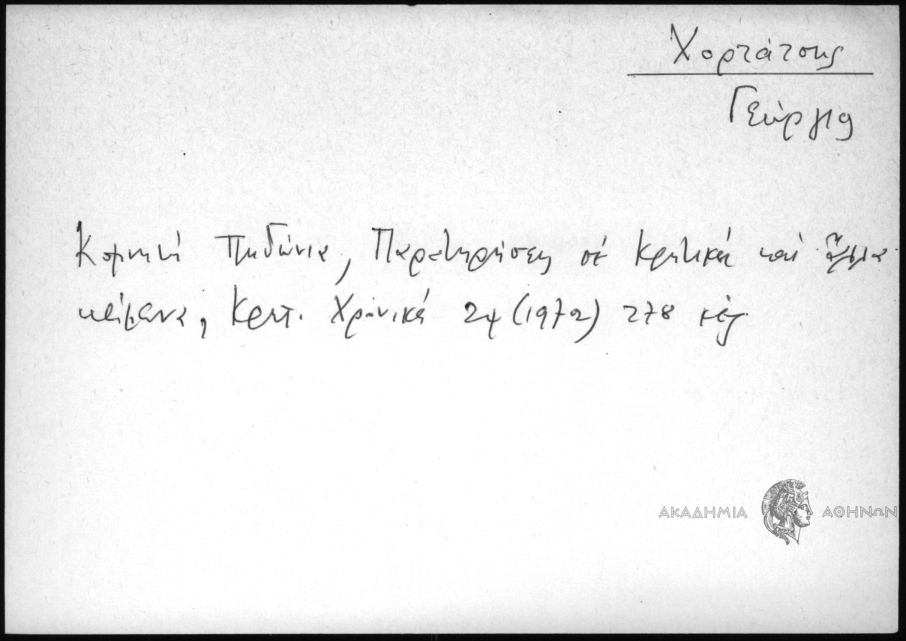 Χορτάτσης
Γεώργιος
Κομνηνή Πηδώνια, Παρατηρήσεις σέ κρητικά καί ἄλλα
κείμενα, Κρητ. Χρονικά 24 (1972) 278 κἑξ
ΑΚΑΔΗΜΙΑ ΑΘΗΝΩΝ